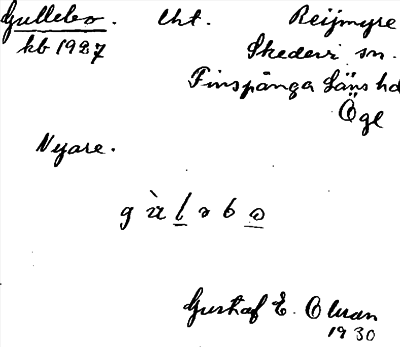 Gullebo. Lht. Reijmyre
kb 1927 Skedevi sn.
Finspånga Läns hd
Ögl
Nyare.
Gustaf E. Olsson
1930